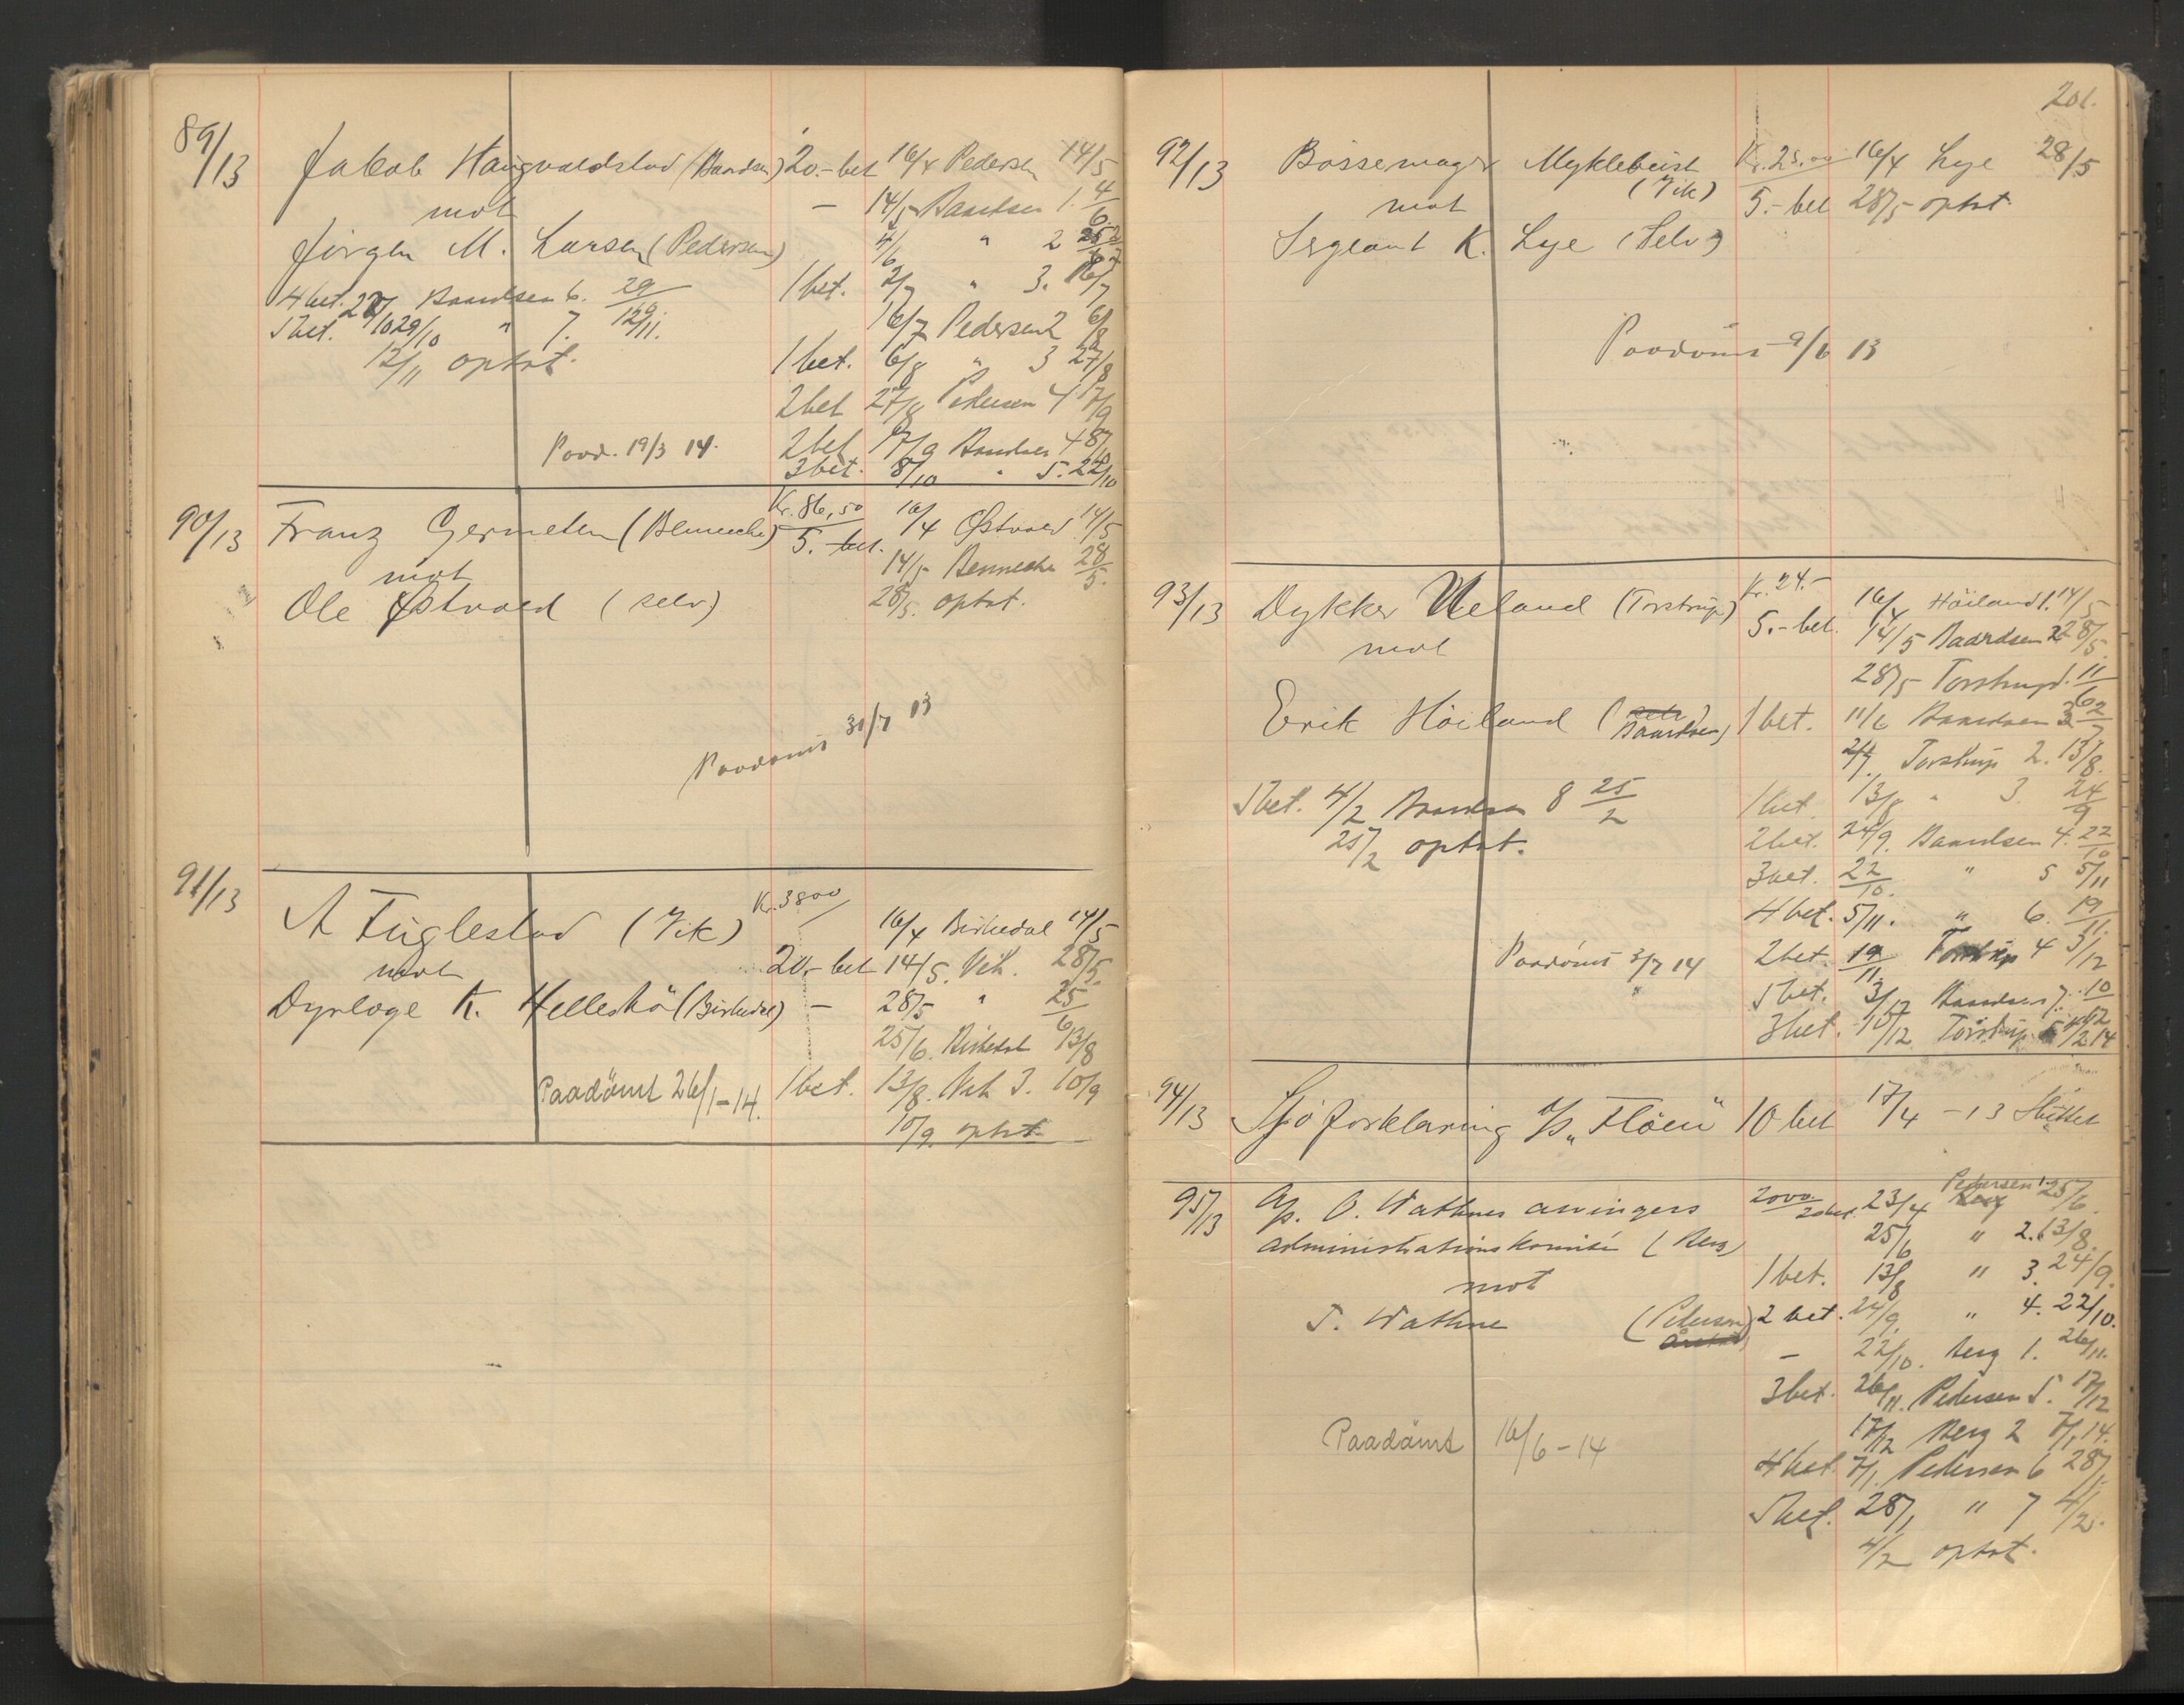 89/13 Jakob Haugvaldstad (Baardsen) 20.- bet 16/4 Pedersen 14/5
mot - 14/5 Baardsen 1. 4/6
Jörgen M. Larsen (Pedersen) 4/6 " 2 25/6
1 bet. 2/7 " 3. 16/7
4 bet. 22/10 Baardsen 6. 29/10
5 bet. 29/10 " 7. 12/11.
12/11 optat.
16/7 Pedersen 2 6/8
1 bet. 6/8 " 3 27/8
2 bet 27/8 Pedersen 4 17/9
Paad. 19/3 14. 2 bet 17/9 Baardsen 4 8/10
3 bet. 8/10 " 5. 22/10
90/13 Franz Germeten (Bennecke) Kr. 86,50 16/4 Østvold 14/5
5. bet. 14/5 Bennecke 28/5.
mot
Ole Østvold (selv) 28/5. optat.
Paadömt 31/7 13
91/13 A Fuglestad (Vik) Kr. 3800 16/4 Birkedal 14/5
mot 20.- bet 14/5. Vik. 28/5.
Dyrlæge K. Hellesbö (Birkedal) - 28/5 " 25/6
25/6. Birkedal 13/8
Paadömt 26/1-14. 1 bet. 13/8. Vik 3. 10/9
10/9. optat.
201.
92/13 Bössemager Myklebust (Vik) Kr. 25.00 16/4 Lye 28/5
mot 5.- bet 28/5 optat.
Sergeant K. Lye (Selv)
Paadömt 9/6 13
93/13 Dykker Ueland (Torstrup) Kr. 24.- 16/4 Höiland 1. 14/5
5.- bet. 14/5 Baardsen 2 28/5.
mot
28/5 Torstrup 1. 11/6
Erik Höiland (selv Baardsen) 1 bet. 11/6 Baardsen 3 2/7
2/7. Torstrup 2. 13/8.
5 bet. 4/2 Baardsen 8 25/2
1 bet. 13/8 " 3. 24/9
25/2 optat.
2 bet. 24/9. Baardsen 4. 22/10
3 bet. 22/10. " 5 5/11
4 bet. 5/11. " 6. 19/11.
Paadömt 3/7 14 2 bet. 19/11. Torstrup 4 3/12
5 bet. 3/12 Baardsen 7. 10/12
3 bet. 10/12 Torstrup 5 4/2 14
94/13 Sjöforklaring S/S "Flöen" 10 bet 17/4 - 13 Sluttet
95/13 A/S. O. Wathnes arvingers 2000 20 bet. 23/4 Pedersen 1. 25/6.
administrationskomité (Berg) 25/6 " 2. 13/8.
mot 1 bet. 13/8 " 3. 24/9.
T. Wathne (Pedersen) 2 bet. 24/9. " 4. 22/10.
- 22/10. Berg 1. 26/11.
3 bet. 26/11. Pedersen 5. 17/12
17/12 Berg 2 7/1 14.
Paadömt 16/6 - 14
4 bet. 7/1. Pedersen 6 28/1
5 bet. 28/1 " 7 4/2.
4/2 optat.